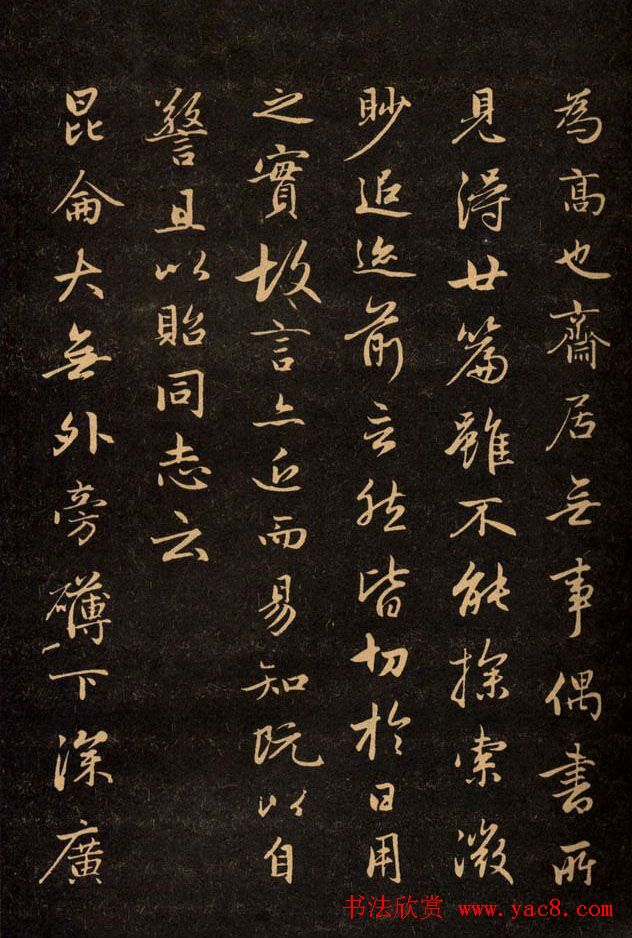 為高也齋居无事偶書所
見得廿篇雖不能探索微
眇追迹前言然皆切於日用
之實故言亦近而易知既以自
警且以貽同志云
昆侖大無外旁礴下深廣
书法欣赏 www.yac8.com